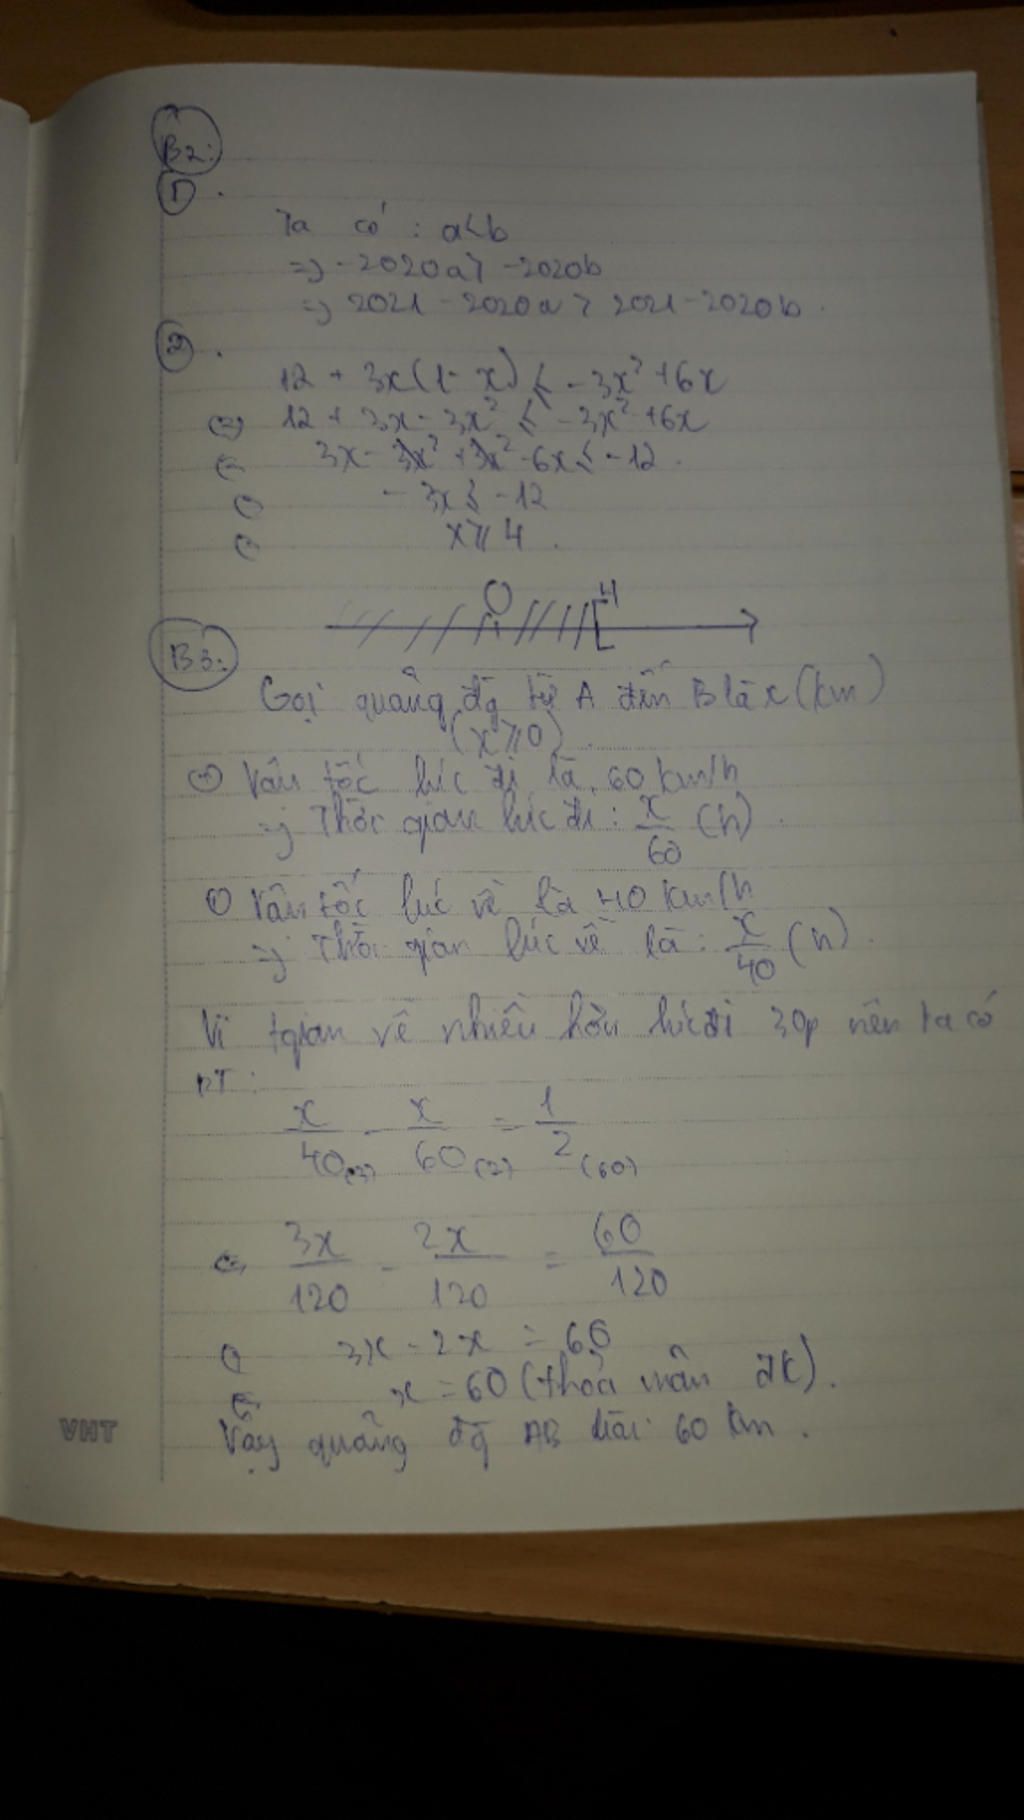 B2:
1.
Ta có : a<b
=> -2020a > -2020b
=> 2021 - 2020a > 2021 - 2020b.
2.
12 + 3x(1 - x) ≤ -3x² + 6x
⇔ 12 + 3x - 3x² ≤ -3x² + 6x
⇔ 3x - 3x² + 3x² - 6x ≤ -12.
⇔ -3x ≤ -12
⇔ x ≥ 4.
O 4
B3:
Gọi quãng đg từ A đến B là x (km)
(x ≥ 0).
+ Vận tốc lúc đi là 60 km/h
=> Thời gian lúc đi : x/60 (h).
+ Vận tốc lúc về là 40 km/h
=> Thời gian lúc về là : x/40 (h).
Vì tgian về nhiều hơn lúc đi 30p nên ta có
PT :
x/40 (3) - x/60 (2) = 1/2 (60)
⇔ 3x/120 - 2x/120 = 60/120
⇔ 3x - 2x = 60
⇔ x = 60 (thỏa mãn đk).
Vậy quãng đg AB dài 60 km.
VHT